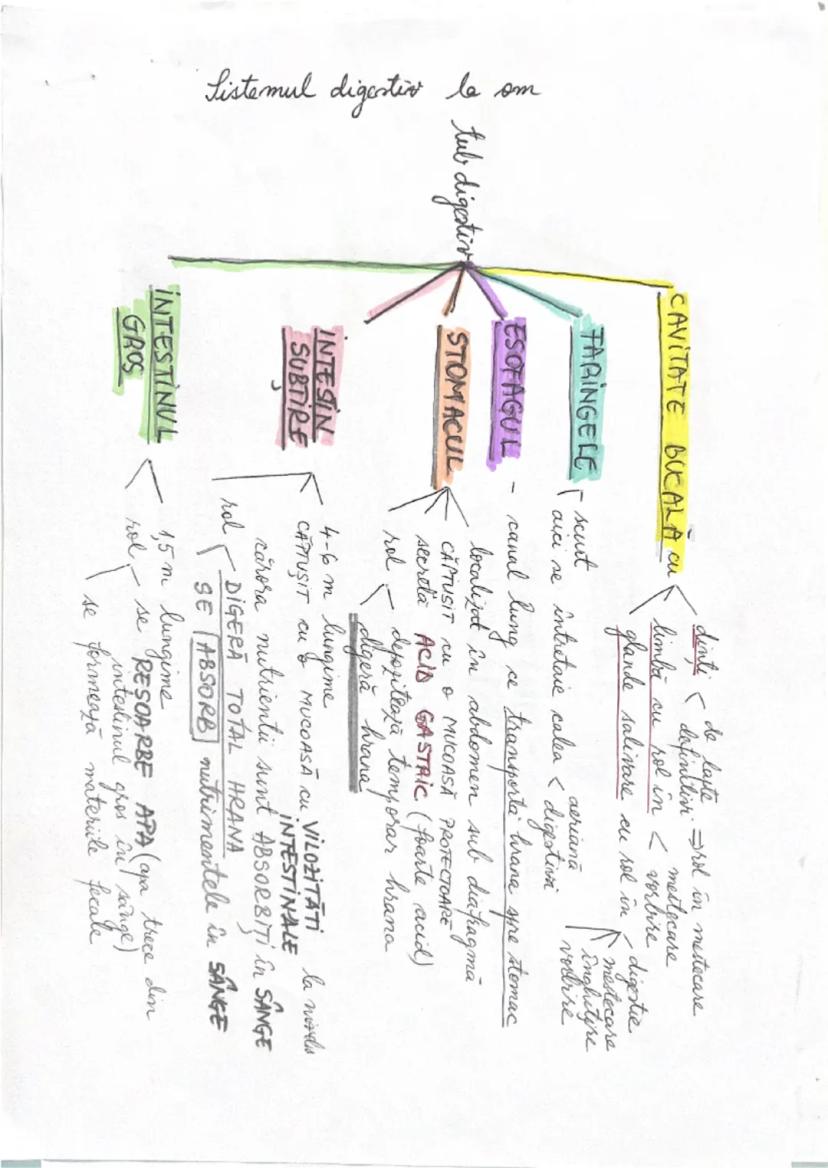 Sistemul digestiv la om
tub digestiv
CAVITATE BUCALĂ cu
dinți < de lapte
definitivi. ⇒ rol în mestecare
limbă cu rol în < mestecare
vorbire
glande salivare cu rol în
digestie
mestecare
înghițire
vorbire
FARINGELE
scurt
aici se întretaie calea < aeriană
digestivă
ESOFAGUL
- canal lung ce transportă hrana spre stomac
STOMACUL
localizat în abdomen sub diafragmă
CĂPTUȘIT cu o MUCOASĂ PROTECTOARE
secretă ACID GASTRIC (foarte acid)
rol < depozitează temporar hrana
digeră hrana
INTESIN
SUBȚIRE
4-6 m lungime
CĂPTUȘIT cu o MUCOASĂ cu VILOZITĂȚI
INTESTINALE
la nivelul
cărora nutrienții sunt ABSORBIȚI în SÂNGE
rol < DIGERĂ TOTAL HRANA
SE ABSORB nutrimentele în SÂNGE
INTESTINUL
GROS
1,5 m lungime
rol - se RESOARBE APA (apa trece din
intestinul gros în sânge)
se formează materiile fecale